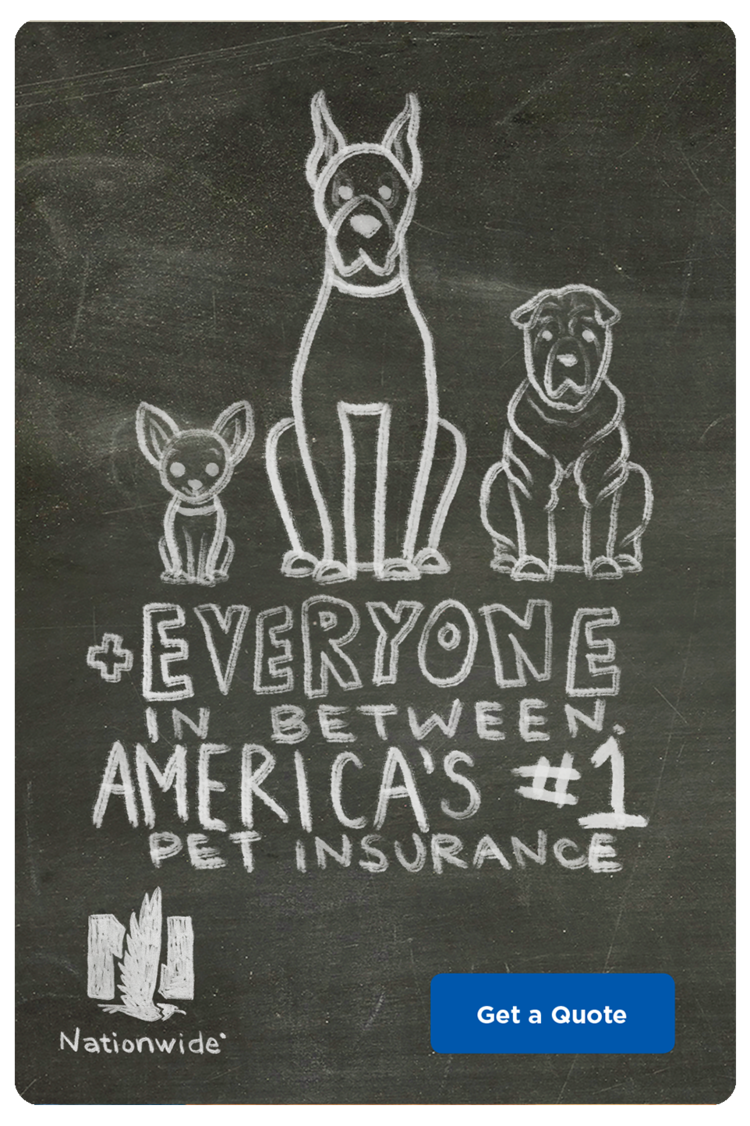 +EVERYONE
IN BETWEEN.
AMERICA'S #1
PET INSURANCE
N
Nationwide®
Get a Quote